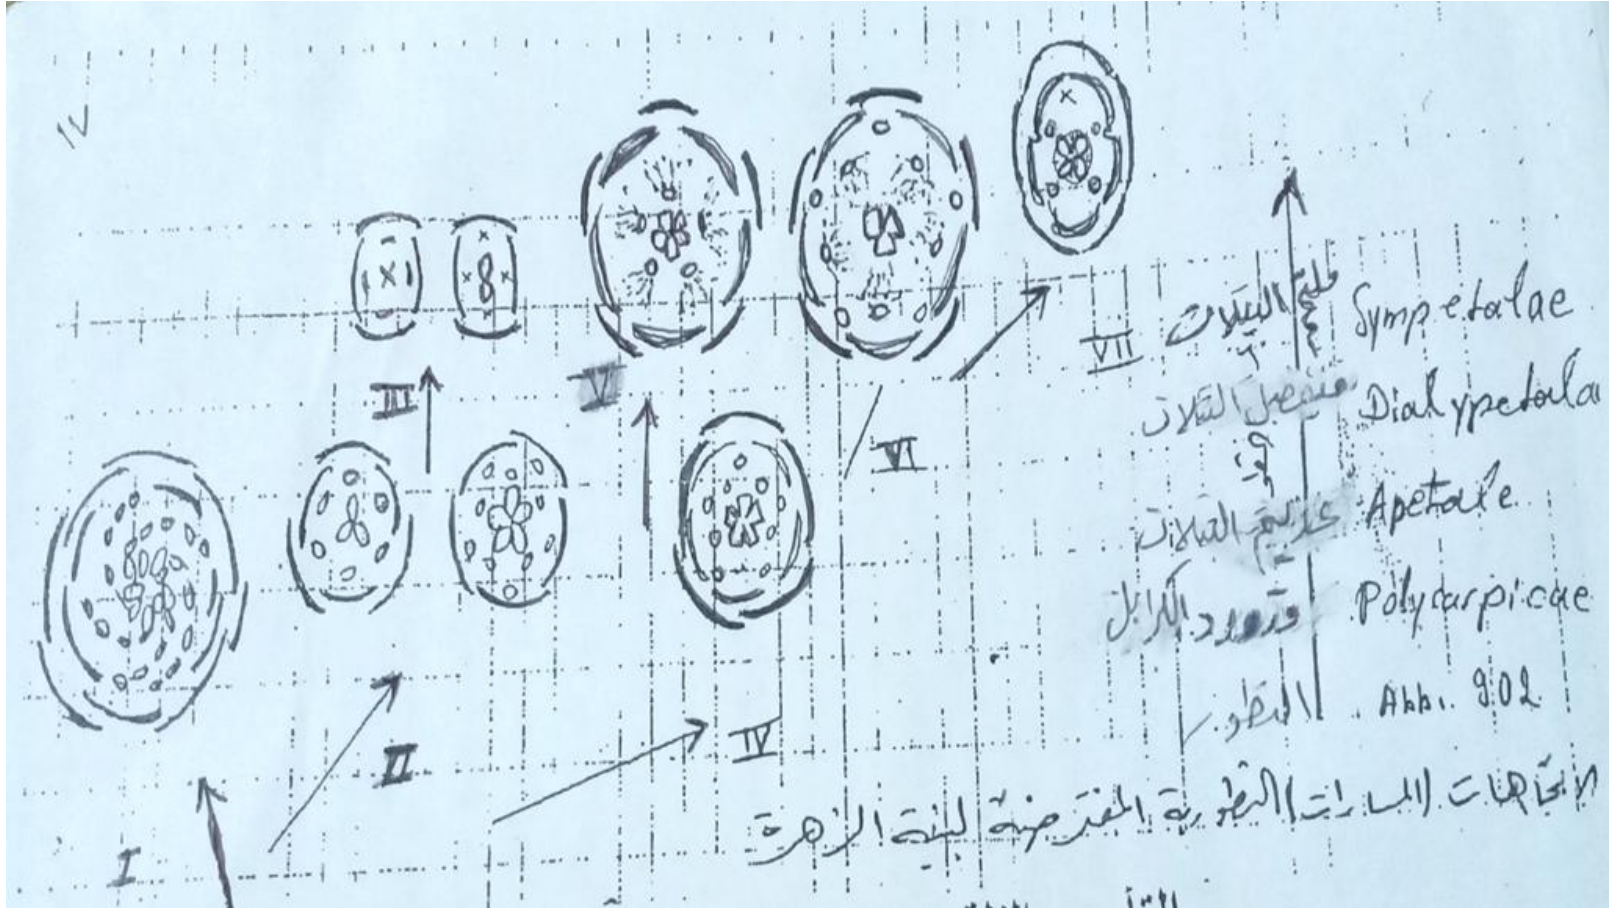 III
V
VII
ملتحمة البتلات Sympetalae
منفصل البتلات Dialypetala
VI
عديم البتلات Apetale
Polycarpicae
التطور Abb. 202
II
IV
الاتجاهات (المسارات) التطورية المفترضة لبنية الزهرة
I